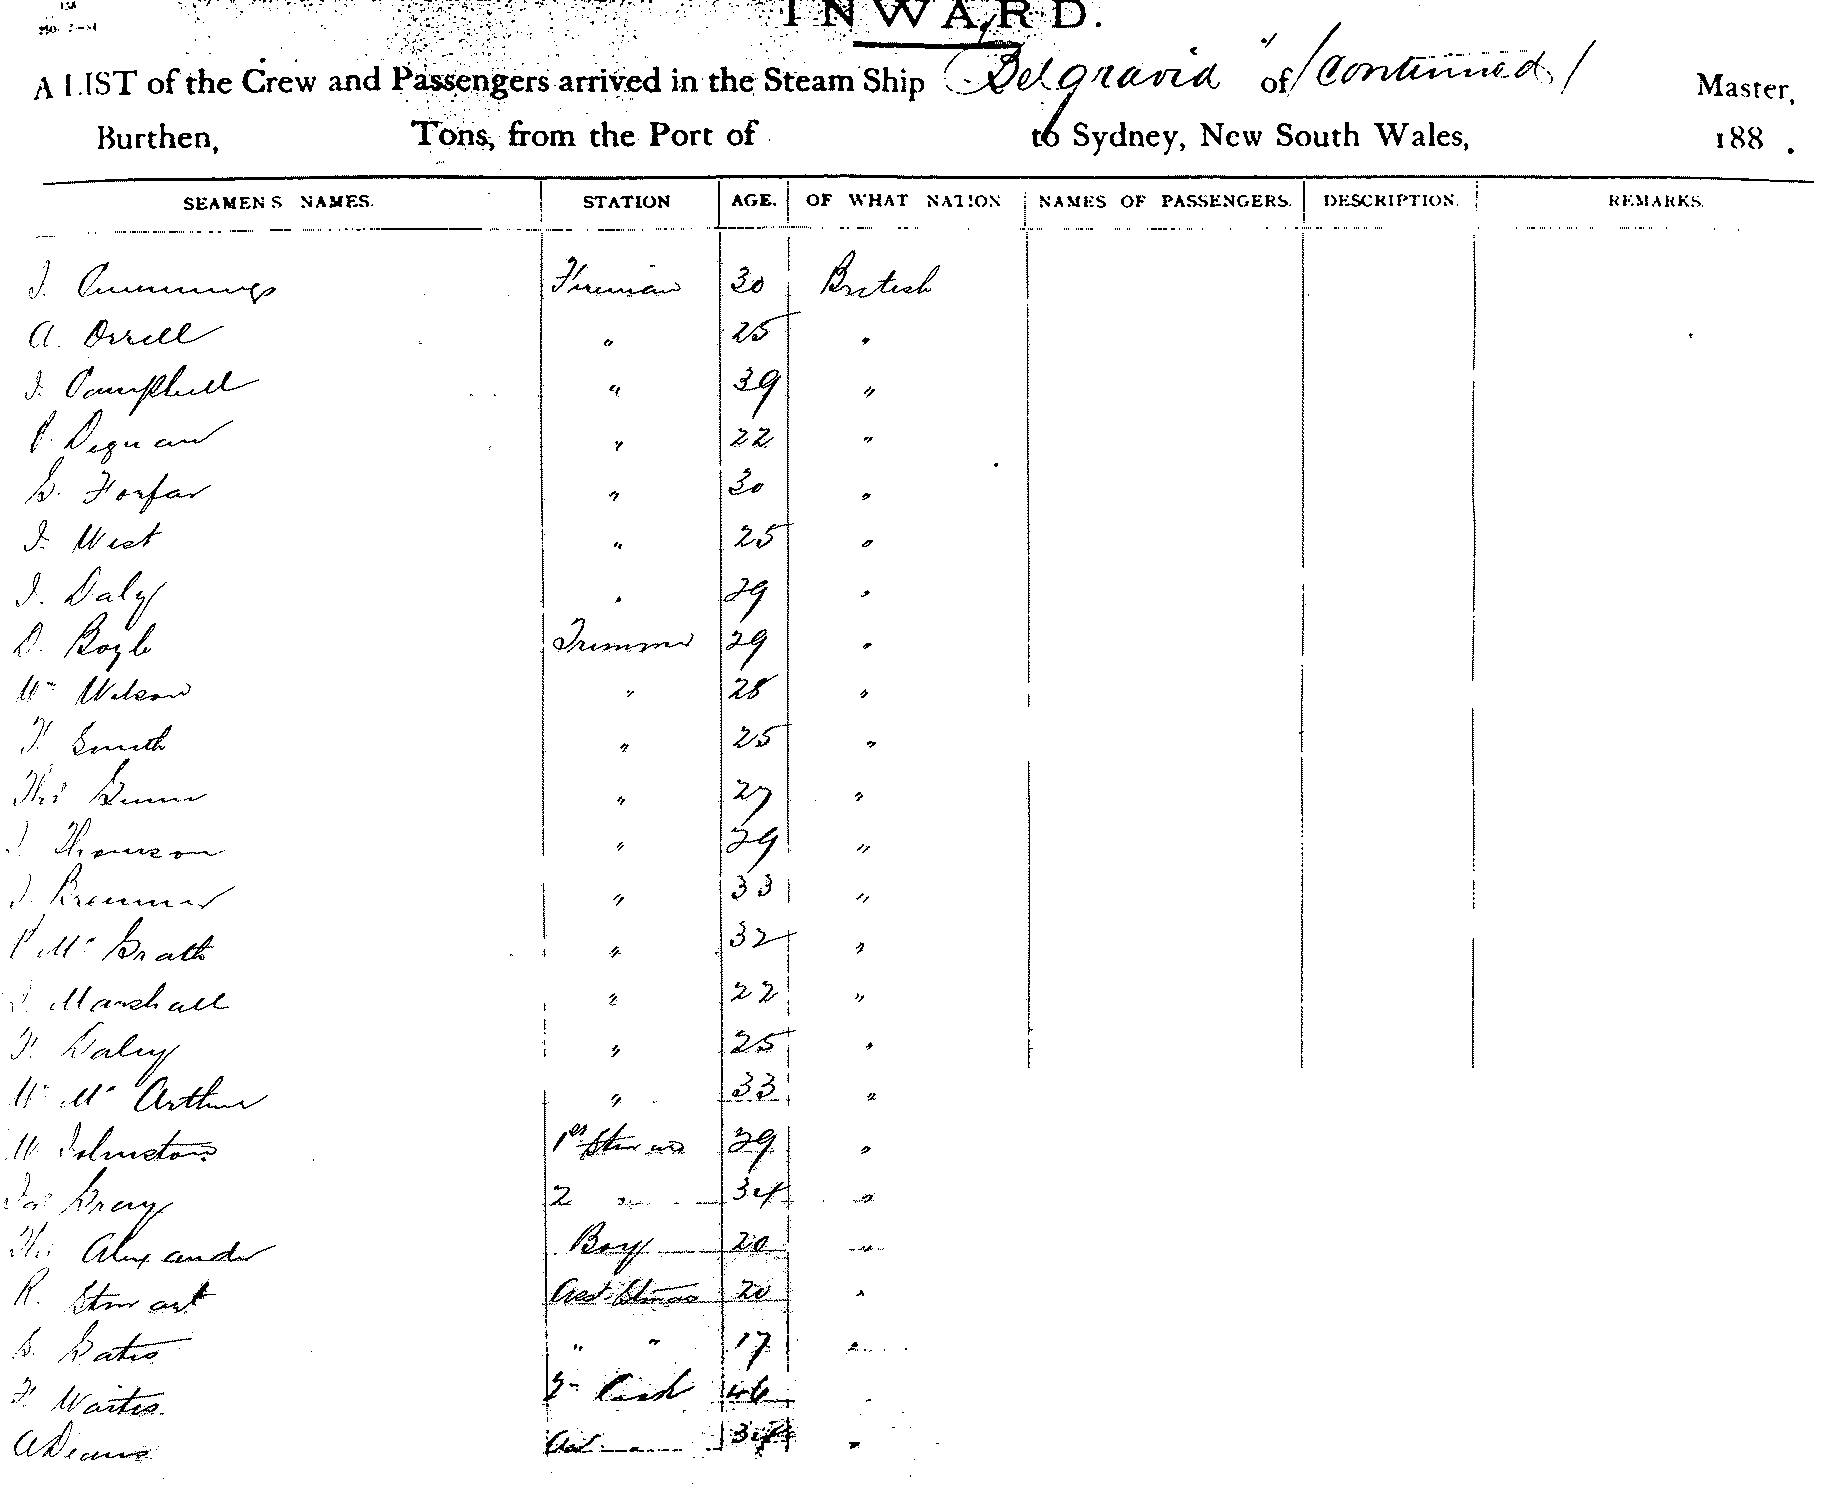 INWARD.
A LIST of the Crew and Passengers arrived in the Steam Ship "Belgravia" of /Continued/ Master,
Burthen, Tons, from the Port of to Sydney, New South Wales, 188 .
SEAMENS NAMES. STATION AGE. OF WHAT NATION NAMES OF PASSENGERS. DESCRIPTION. REMARKS.
J. Cummings Fireman 30 British
A. Orrell " 25 "
J. Campbell " 39 "
P. Degnan " 22 "
G. Forfar " 30 "
J. West " 25 "
J. Daly " 29 "
D. Boyle Trimmer 29 "
Wm Wilson " 28 "
F. Smith " 25 "
Thos Gunn " 27 "
J. Thomson " 29 "
J. Bremner " 33 "
P. Mc Grath " 32 "
J. Marshall " 22 "
F. Daley " 25 "
Wm Mc Arthur " 33 "
W Johnston 1st Steward 29 "
Jas Gray 2 " 34 "
Thos Alexander Boy 20 "
R. Stewart Asst. Steward 20 "
G. Gates " " 17 "
F. Waites Cook 46
A Deans 34 "